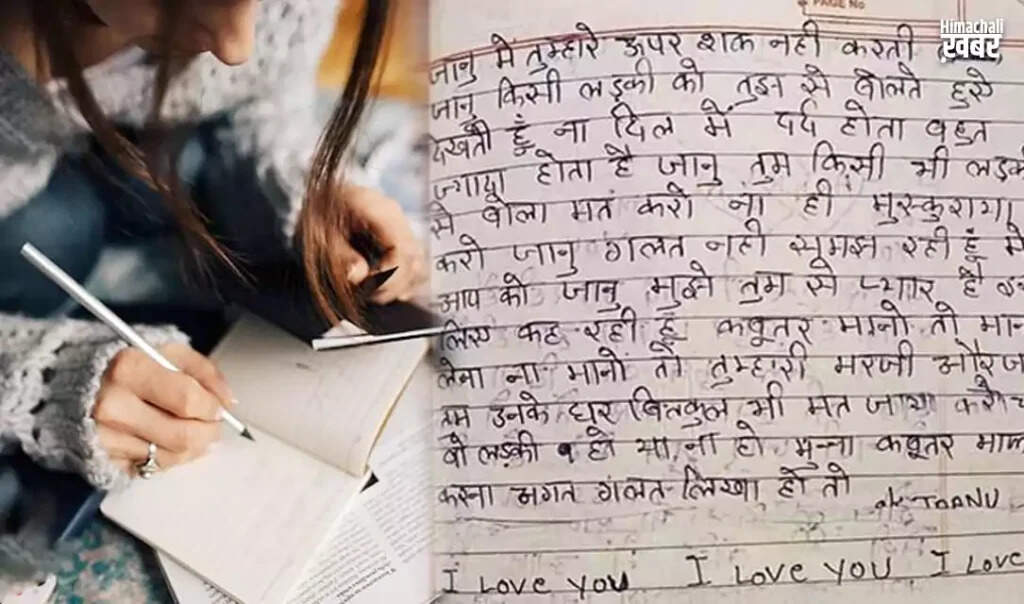 PAGE No
Himachali
ख़बर
जानु में तुम्हारे ऊपर शक नही करती
जानु किसी लड़की को तुझ से बोलते हुये
देखती हूँ ना दिल में दर्द होता बहुत
ज्यादा होता है जानु तुम किसी भी लड़की
से बोला मत करो ना ही मुस्कुराया
करो जानु गलत नही समझ रही हूँ मे
आप को जानु मुझे तुम से प्यार है इस
लिए कह रही हूँ कबूतर मानो तो मान
लेना ना मानो तो तुम्हारी मरजी और
तुम उनके घर बिलकुल भी मत जाया करो
वो लड़की हो या ना हो मुन्ना कबूतर माफ
करना अगर गलत लिखा हो तो ok JAANU
I Love you I Love you I Love